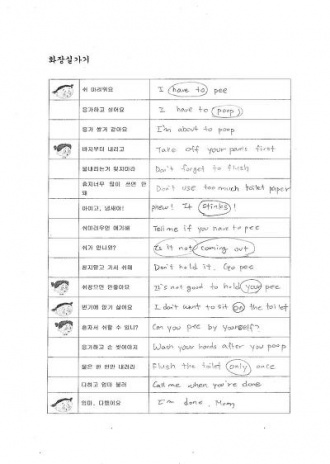 화장실가기
쉬 마려워요 I have to pee
응가하고 싶어요 I have to poop
응가 쌀거 같아요 I'm about to poop
바지부터 내리고 Take off your pants first
물내리는거 잊지마라 Don't forget to flush
휴지너무 많이 쓰면 안돼 Don't use too much toilet paper
아이고, 냄새야! phew! It stinks!
쉬마려우면 얘기해 Tell me if you have to pee
쉬가 안나와? Is it not coming out
참지말고 가서 쉬해 Don't hold it. Go pee
쉬참으면 안좋아요 It's not good to hold your pee
변기에 앉기 싫어요 I don't want to sit on the toilet
혼자서 쉬할 수 있니? Can you pee by yourself?
응가하고 손 씻어야지 Wash your hands after you poop
물은 한 번만 내려라 Flush the toilet only once
다하고 엄마 불러 Call me when you're done
엄마, 다했어요 I'm done, Mommy